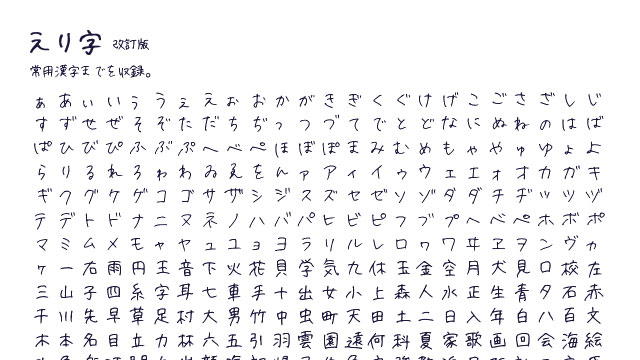 えり字 改訂版
常用漢字までを収録。
ぁあぃいぅうぇえぉおかがきぎくぐけげこごさざしじ
すずせぜそぞただちぢっつづてでとどなにぬねのはば
ぱひびぴふぶぷへべぺほぼぽまみむめもゃやゅゆょよ
らりるれろゎわゐゑをんァアィイゥウェエォオカガキ
ギクグケゲコゴサザシジスズセゼソゾタダチヂッツヅ
テデトドナニヌネノハバパヒビピフブプヘベペホボポ
マミムメモャヤュユョヨラリルレロヮワヰヱヲンヴヵ
ヶ一右雨円王音下火花貝学気九休玉金空月犬見口校左
三山子四糸字耳七車手十出女小上森人水正生青夕石赤
千川先早草足村大男竹中虫町天田土二日入年白八百文
木本名目立力林六五引羽雲園遠何科夏家歌画回会海絵